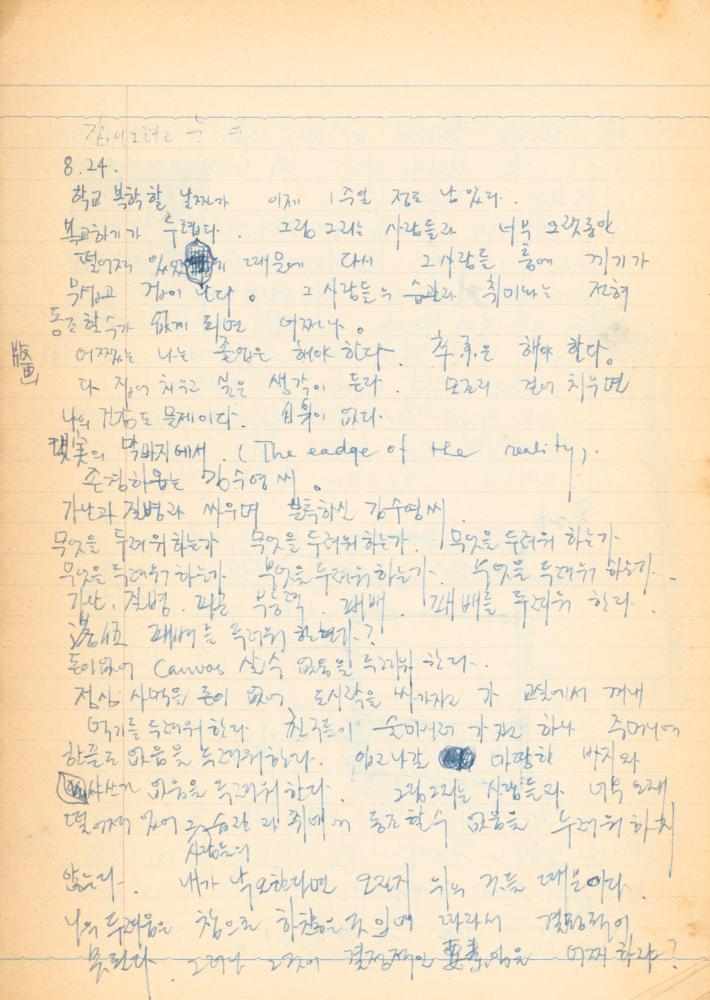 8.24.
학교 복학할 날짜가 이제 1주일 정도 남았다.
복교하기가 두렵다. 그림 그리는 사람들과 너무 오랫동안
떨어져 있었기 때문에 다시 그 사람들 틈에 끼기가
무섭고 겁이 난다. 그 사람들의 습관과 취미나는 전혀
동조할수가 없게 되면 어쩌나.
版画
어쨌든 나는 졸업은 해야 한다. 해야 할다.
다 집어 치우고 싶은 생각이 든다. 모조리 걷어 치우면
나의 건강도 문제이다. 自身이 없다.
現実의 막바지에서. (The eadge of the reality).
존경하옵는 김수영씨.
가난과 질병과 싸우며 김수영씨.
무엇을 두려워하는가 무엇을 두려워하는가. 무엇을 두려워 하는가
무엇을 두려워하는가 무엇을 두려워하는가. 무엇을 두려워 하는가.
가난, 질병, 피곤 무능력. 패배. 패배를 두려워 한다.
落伍 패배를 두려워 한다?
돈이없어 Canvas 살수 없음을 두려워 한다.
점심 사먹을 돈이 없어, 도시락을 싸가지고 가 교실에서 꺼내
먹기를 두려워한다. 친구들이 술마시러 가자고 하나 주머니에
한푼도 없음을 두려워한다. 입고나갈 마땅한 바지와
샤쓰가 없음을 두려워한다. 그림그리는 사람들과 너무 오래
떨어져 있어 그 습관과 취미에 동조할수 없음을 두려워 하지
사람들의
않는다. 내가 낙오한다면 오직 위의 것들 때문이다.
나의 두려움은 참으로 하찮은 따라서 결정적이
못된다. 그러나 그것이 결정적인 要素임을 어찌하랴?